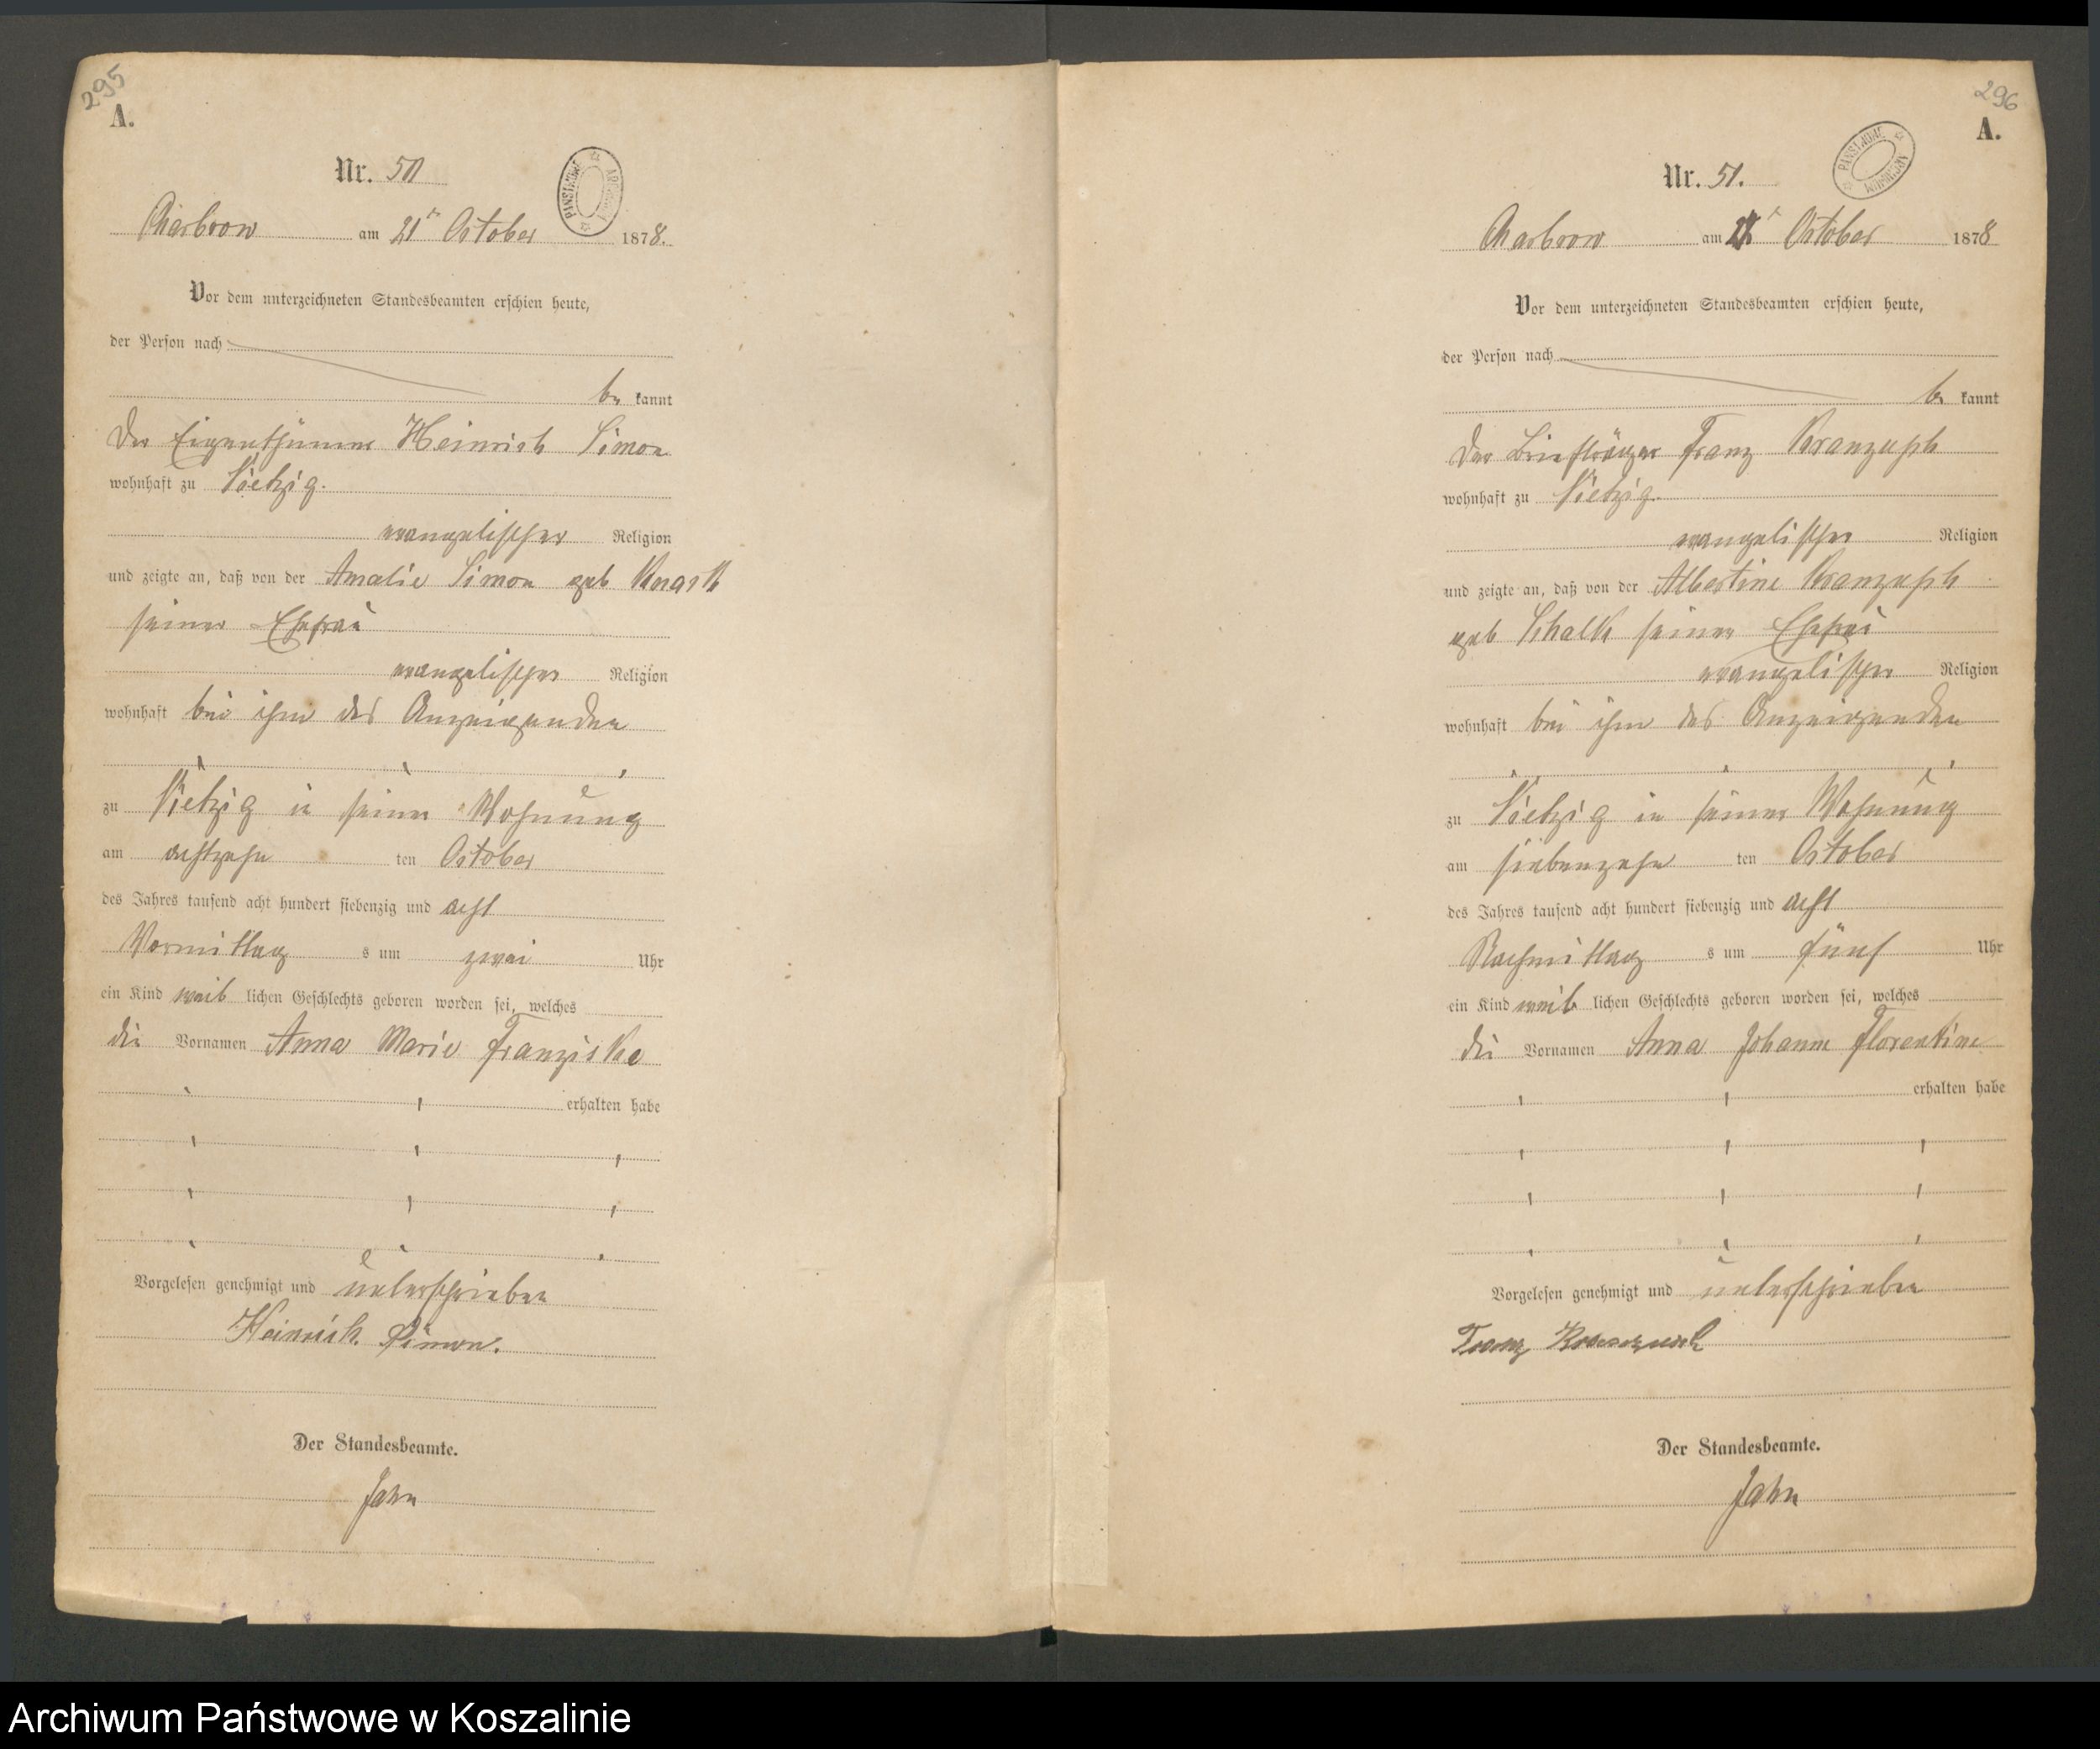 295
A.
Nr. 50
PAŃSTWOWE ARCHIWUM
Charbrow am 21ten October 1878.
Vor dem unterzeichneten Standesbeamten erschien heute,
der Person nach
be kannt
der Eigenthümer Heinrich Simon
wohnhaft zu Vietzig.
evangelischer Religion
und zeigte an, daß von der Amalie Simon geb Knaak
seiner Ehefrau
evangelischer Religion
wohnhaft bei ihm des Anzeigenden
zu Vietzig in seiner Wohnung
am achtzehn ten October
des Jahres tausend acht hundert siebenzig und acht
Vormittag s um zwei Uhr
ein Kind weib lichen Geschlechts geboren worden sei, welches
die Vornamen Anna Marie Franziska
erhalten habe
Vorgelesen genehmigt und unterschrieben
Heinrich Simon.
Der Standesbeamte.
Jahn
296
A.
Nr. 51.
PAŃSTWOWE ARCHIWUM
Charbrow am October 1878
Vor dem unterzeichneten Standesbeamten erschien heute,
der Person nach
be kannt
der Briefträger Franz
wohnhaft zu Vietzig.
evangelischer Religion
und zeigte an, daß von der Albertine
geb Schalk seiner Ehefrau
evangelischer Religion
wohnhaft bei ihm des Anzeigenden
zu Vietzig in seiner Wohnung
am siebenzehn ten October
des Jahres tausend acht hundert siebenzig und acht
Nachmittag s um fünf Uhr
ein Kind weib lichen Geschlechts geboren worden sei, welches
die Vornamen Anna Johanne Florentine
erhalten habe
Vorgelesen genehmigt und unterschrieben
Franz
Der Standesbeamte.
Jahn
Archiwum Państwowe w Koszalinie